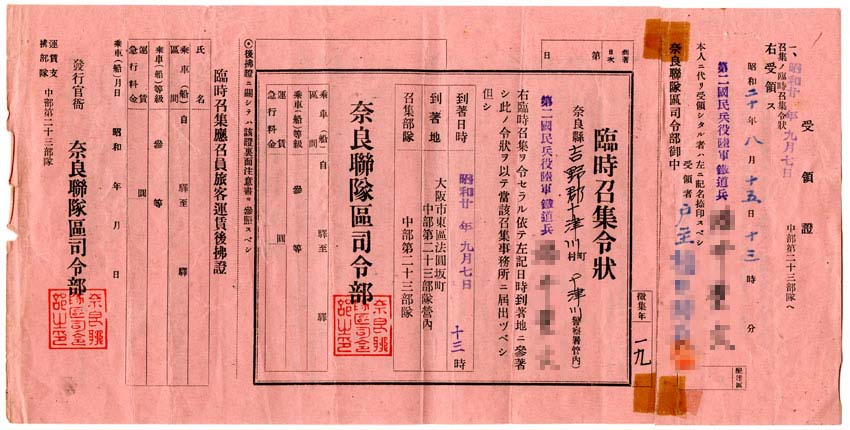 受領證
一、
昭和廿年九月七日
召集ノ臨時召集令狀
中部第二十三部隊ヘ
右受領ス
昭和二十年八月十五日十三時 分
第二國民兵役陸軍鐵道兵
本人ニ代リ受領シタル者ハ左ニ記名捺印スベシ
受領者戸主
奈良聯隊區司令部御中
配達區
徵集年 一九
臨時召集令狀
奈良縣吉野郡十津川村町 十津川警察署管內
第二國民兵役陸軍鐵道兵
右臨時召集ヲ令セラル依テ左記日時到著地ニ參著
シ此ノ令狀ヲ以テ當該召集事務所ニ屆出ヅベシ
但シ
到著日時 昭和廿年九月七日 十三時
到著地 大阪市東區法圓坂町
中部第二十三部隊營內
召集部隊 中部第二十三部隊
奈良聯隊區司令部
奈良聯隊區司令部之印
區間 自 驛至 驛
乘車(船)等級 參等
運賃 圓
急行料金
到著日次 第 日
◎後拂證ニ關シテハ該證裏面注意書ヲ參照スベシ
臨時召集應召員旅客運賃後拂證
氏名
乘車(船)區間 自 驛至 驛
乘車(船)等級 參等
運賃 圓
急行料金
乘車(船)月日 昭和 年 月 日
發行官衙 奈良聯隊區司令部
奈良聯隊區司令部之印
運賃支拂部隊 中部第二十三部隊